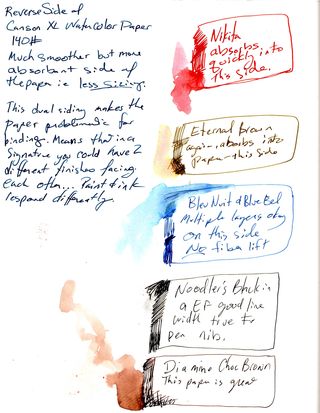 Reverse Side of
Canson XL Watercolor Paper
140#
Much smoother but more
absorbant side of
the paper ie less sizing.
This dual siding makes the
paper problematic for
binding. Means that in a
signature you could have 2
different finishes facing
each other... Paint & ink
respond differently.
Nikita
absorbs
quickly into
this side.
Eternal Brown
again, absorbs into
paper this side
Bleu Nuit & Blue Eel
Multiple layers okay
on this side
No fiber lift
Noodler's Black in
a EF good line
width true for
pen nib.
Diamine Choc Brown
This paper is great